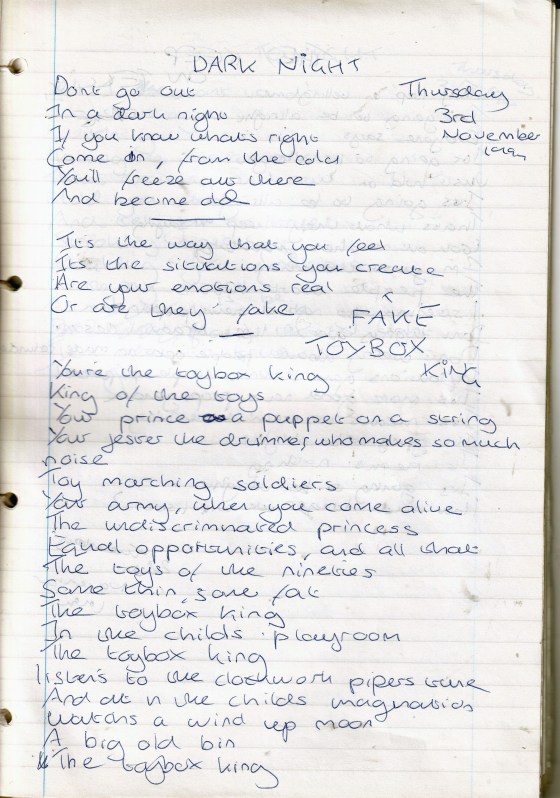 DARK NIGHT
Thursday
3rd
November
Dont go out
In a dark night
If you know whats right
Come in, from the cold
You'll freeze out there
And become old
Its the way that you feel
Its the situations you create
Are your emotions real
Or are they fake
FAKE
TOYBOX
KING
Youre the toybox king
King of the toys
Your prince a puppet on a string
Your jester the drummer, who makes so much
noise
Toy marching soldiers
Your army, when you come alive
The undiscriminated princess
Equal opportunities, and all that
The toys of the nineties
Some thin, some fat
The toybox king
In the childs playroom
The toybox king
listens to the clockwork pipers tune
And all in the childs imagination
Watchs a wind up moon
A big old bin
The toybox king